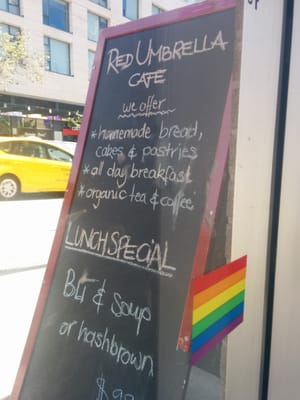 RED UMBRELLA
CAFE
we offer
* homemade bread,
cakes & pastries
* all day breakfast
* organic tea & coffee
LUNCH SPECIAL
BLT & Soup
or hashbrown